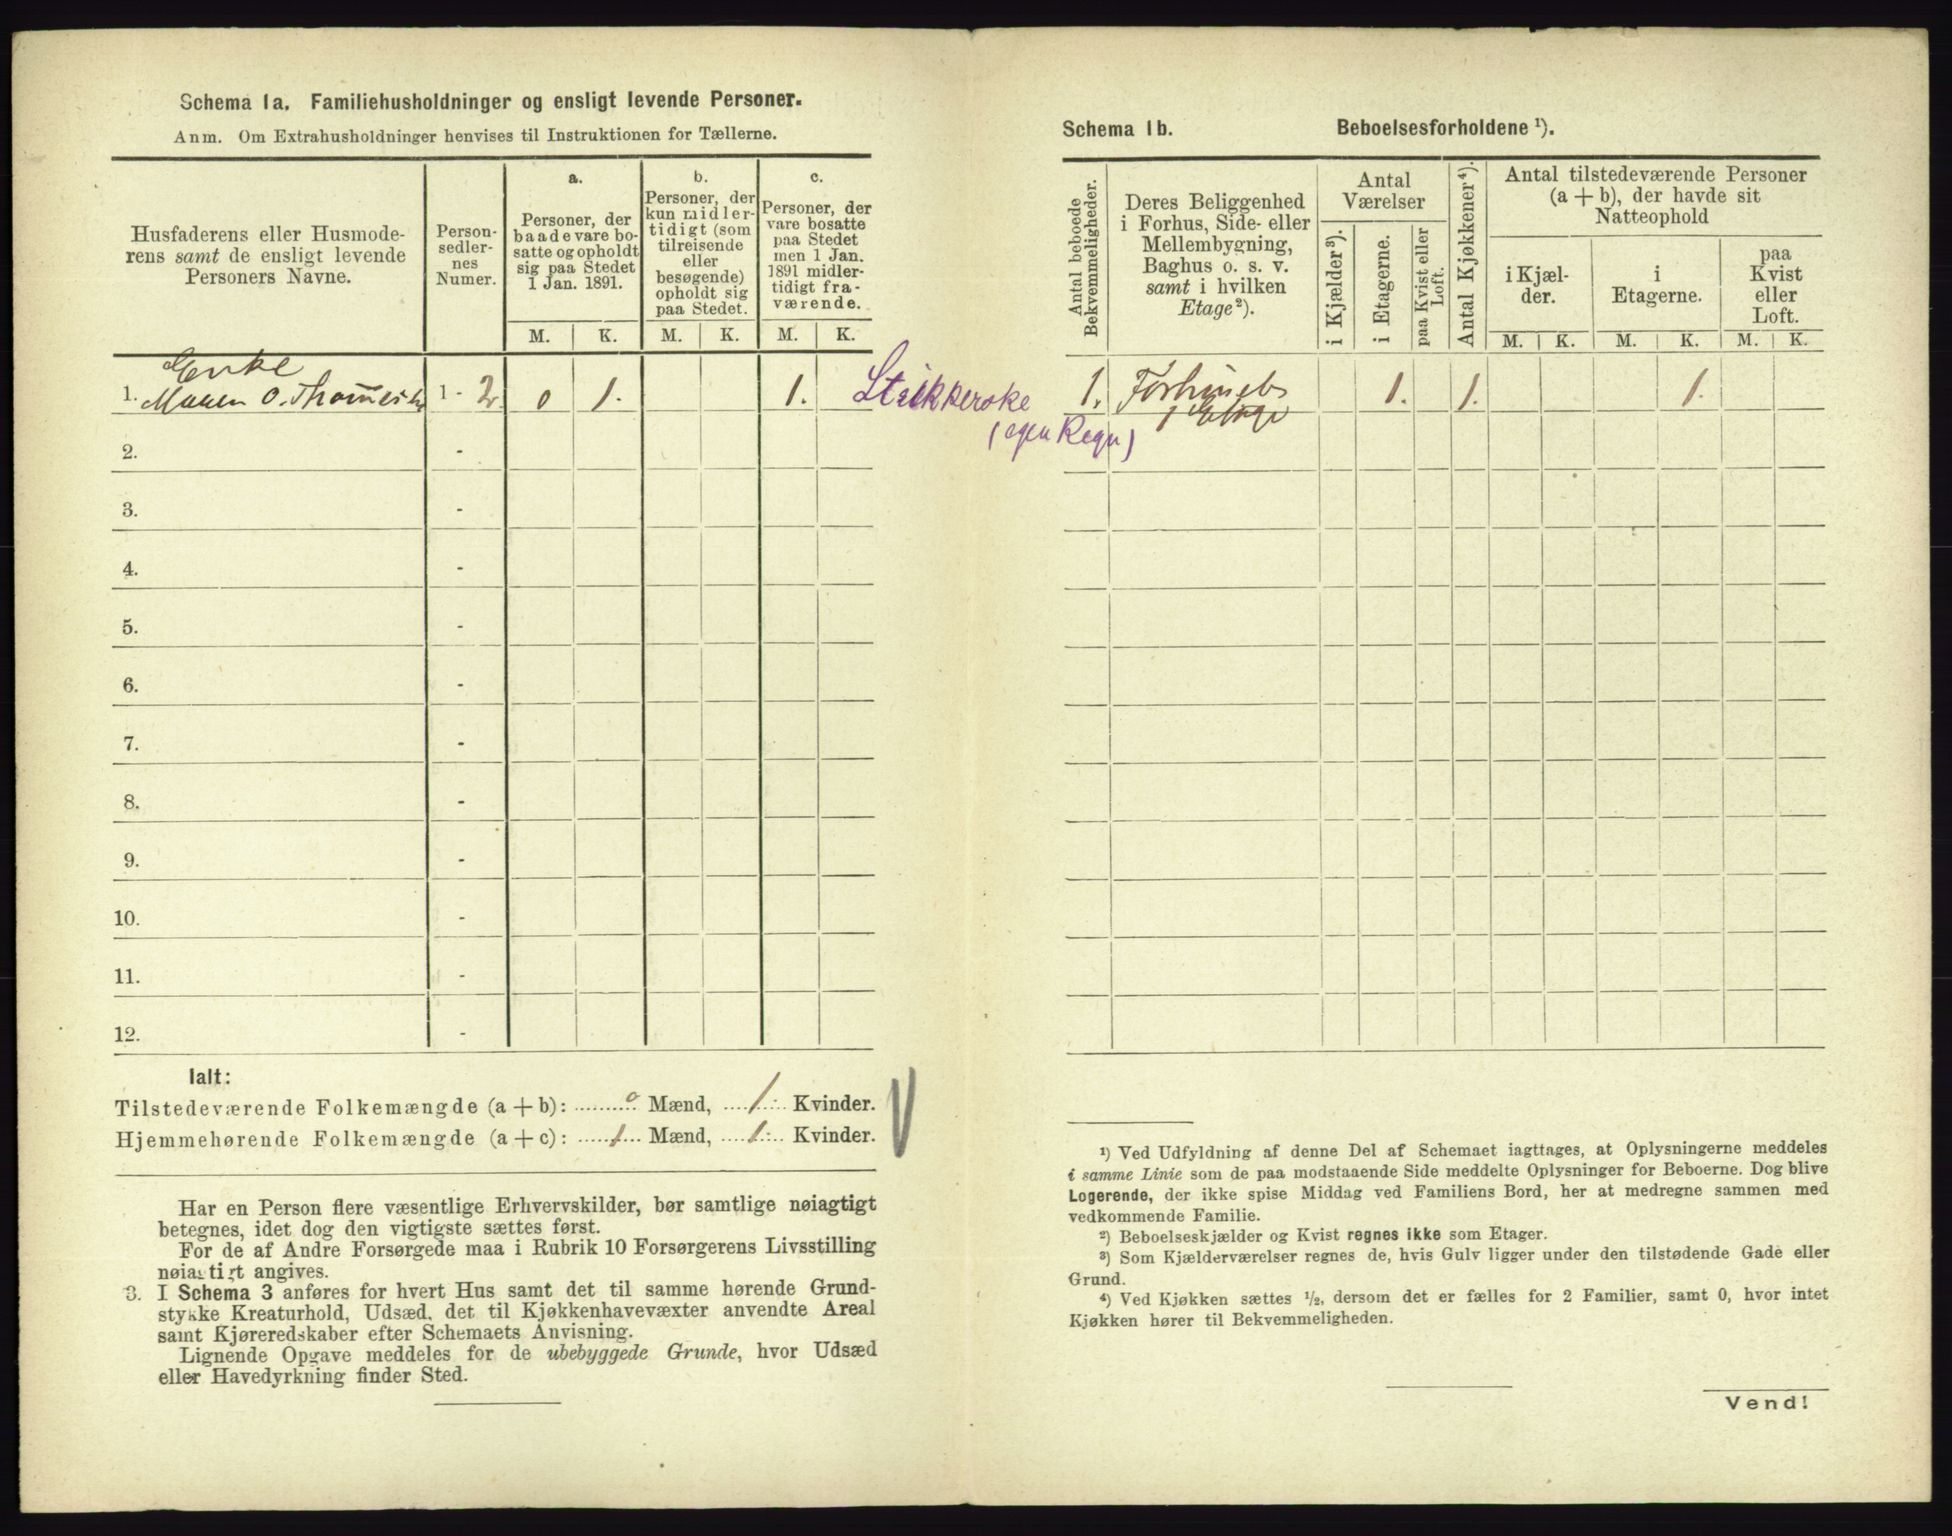 Schema 1a. Familiehusholdninger og ensligt levende Personer.
Anm. Om Extrahusholdninger henvises til Instruktionen for Tællerne.
Husfaderens eller Husmode-
rens samt de ensligt levende
Personers Navne.
Person-
sedler-
nes
Numer.
a.
Personer, der
baade vare bo-
satte og opholdt
sig paa Stedet
1 Jan. 1891.
b.
Personer, der
kun midler-
tidigt (som
tilreisende
eller
besøgende)
opholdt sig
paa Stedet.
c.
Personer, der
vare bosatte
paa Stedet
men 1 Jan.
1891 midler-
tidigt fra-
værende.
M. K. M. K. M. K.
Enke
1. Maren O. 1 - 2 0 1. 1.
2. -
3. -
4. -
5. -
6. -
7. -
8. -
9. -
10. -
11. -
12. -
Ialt:
Tilstedeværende Folkemængde (a + b): 0 Mænd, 1 Kvinder.
Hjemmehørende Folkemængde (a + c): 1 Mænd, 1 Kvinder.
Har en Person flere væsentlige Erhvervskilder, bør samtlige nøiagtigt
betegnes, idet dog den vigtigste sættes først.
For de af Andre Forsørgede maa i Rubrik 10 Forsørgerens Livsstilling
nøiagtigt angives.
3. I Schema 3 anføres for hvert Hus samt det til samme hørende Grund-
stykke Kreaturhold, Udsæd, det til Kjøkkenhavevæxter anvendte Areal
samt Kjøreredskaber efter Schemaets Anvisning.
Lignende Opgave meddeles for de ubebyggede Grunde, hvor Udsæd
eller Havedyrkning finder Sted.
Schema 1b. Beboelsesforholdene ¹).
Antal beboede
Bekvemmeligheder.
Deres Beliggenhed
i Forhus, Side- eller
Mellembygning,
Baghus o. s. v.
samt i hvilken
Etage²).
Antal
Værelser
i Kjælder³).
i Etagerne.
paa Kvist eller
Loft.
Antal Kjøkkener⁴).
Antal tilstedeværende Personer
(a + b), der havde sit
Natteophold
i Kjæl-
der.
i
Etagerne.
paa
Kvist
eller
Loft.
M. K. M. K. M. K.
(egen Regn)
1. 1. 1. 1.
1 Etage
¹) Ved Udfyldning af denne Del af Schemaet iagttages, at Oplysningerne meddeles
i samme Linie som de paa modstaaende Side meddelte Oplysninger for Beboerne. Dog blive
Logerende, der ikke spise Middag ved Familiens Bord, her at medregne sammen med
vedkommende Familie.
²) Beboelseskjælder og Kvist regnes ikke som Etager.
³) Som Kjælderværelser regnes de, hvis Gulv ligger under den tilstødende Gade eller
Grund.
⁴) Ved Kjøkken sættes ½, dersom det er fælles for 2 Familier, samt 0, hvor intet
Kjøkken hører til Bekvemmeligheden.
Vend!